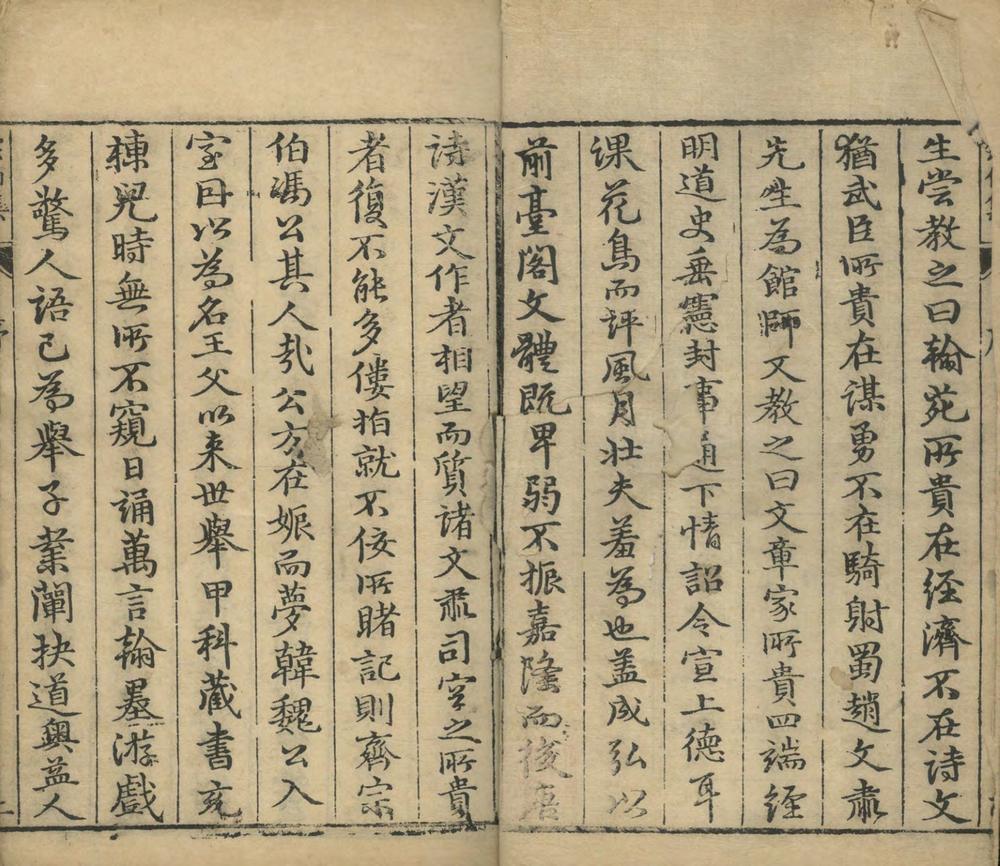 生嘗教之曰翰苑所貴在經濟不在詩文
猶武臣所貴在謀勇不在騎射蜀趙文肅
先生為館師又教之曰文章家所貴四端經
明道史垂憲封事通下情詔令宣上德耳
課花鳥而評風月壯夫羞為也盖成弘以
前臺閣文體既卑弱不振嘉隆而後唐
詩漢文作者相望而質諸文肅司空之所貴
者復不能多僂指就不佞所睹記則齊宗
伯馮公其人哉公方在娠而夢韓魏公入
室因以為名王父以來世舉甲科藏書充
棟兒時無所不窺日誦萬言翰墨游戲
多驚人語已為舉子業闡抉道奧益人